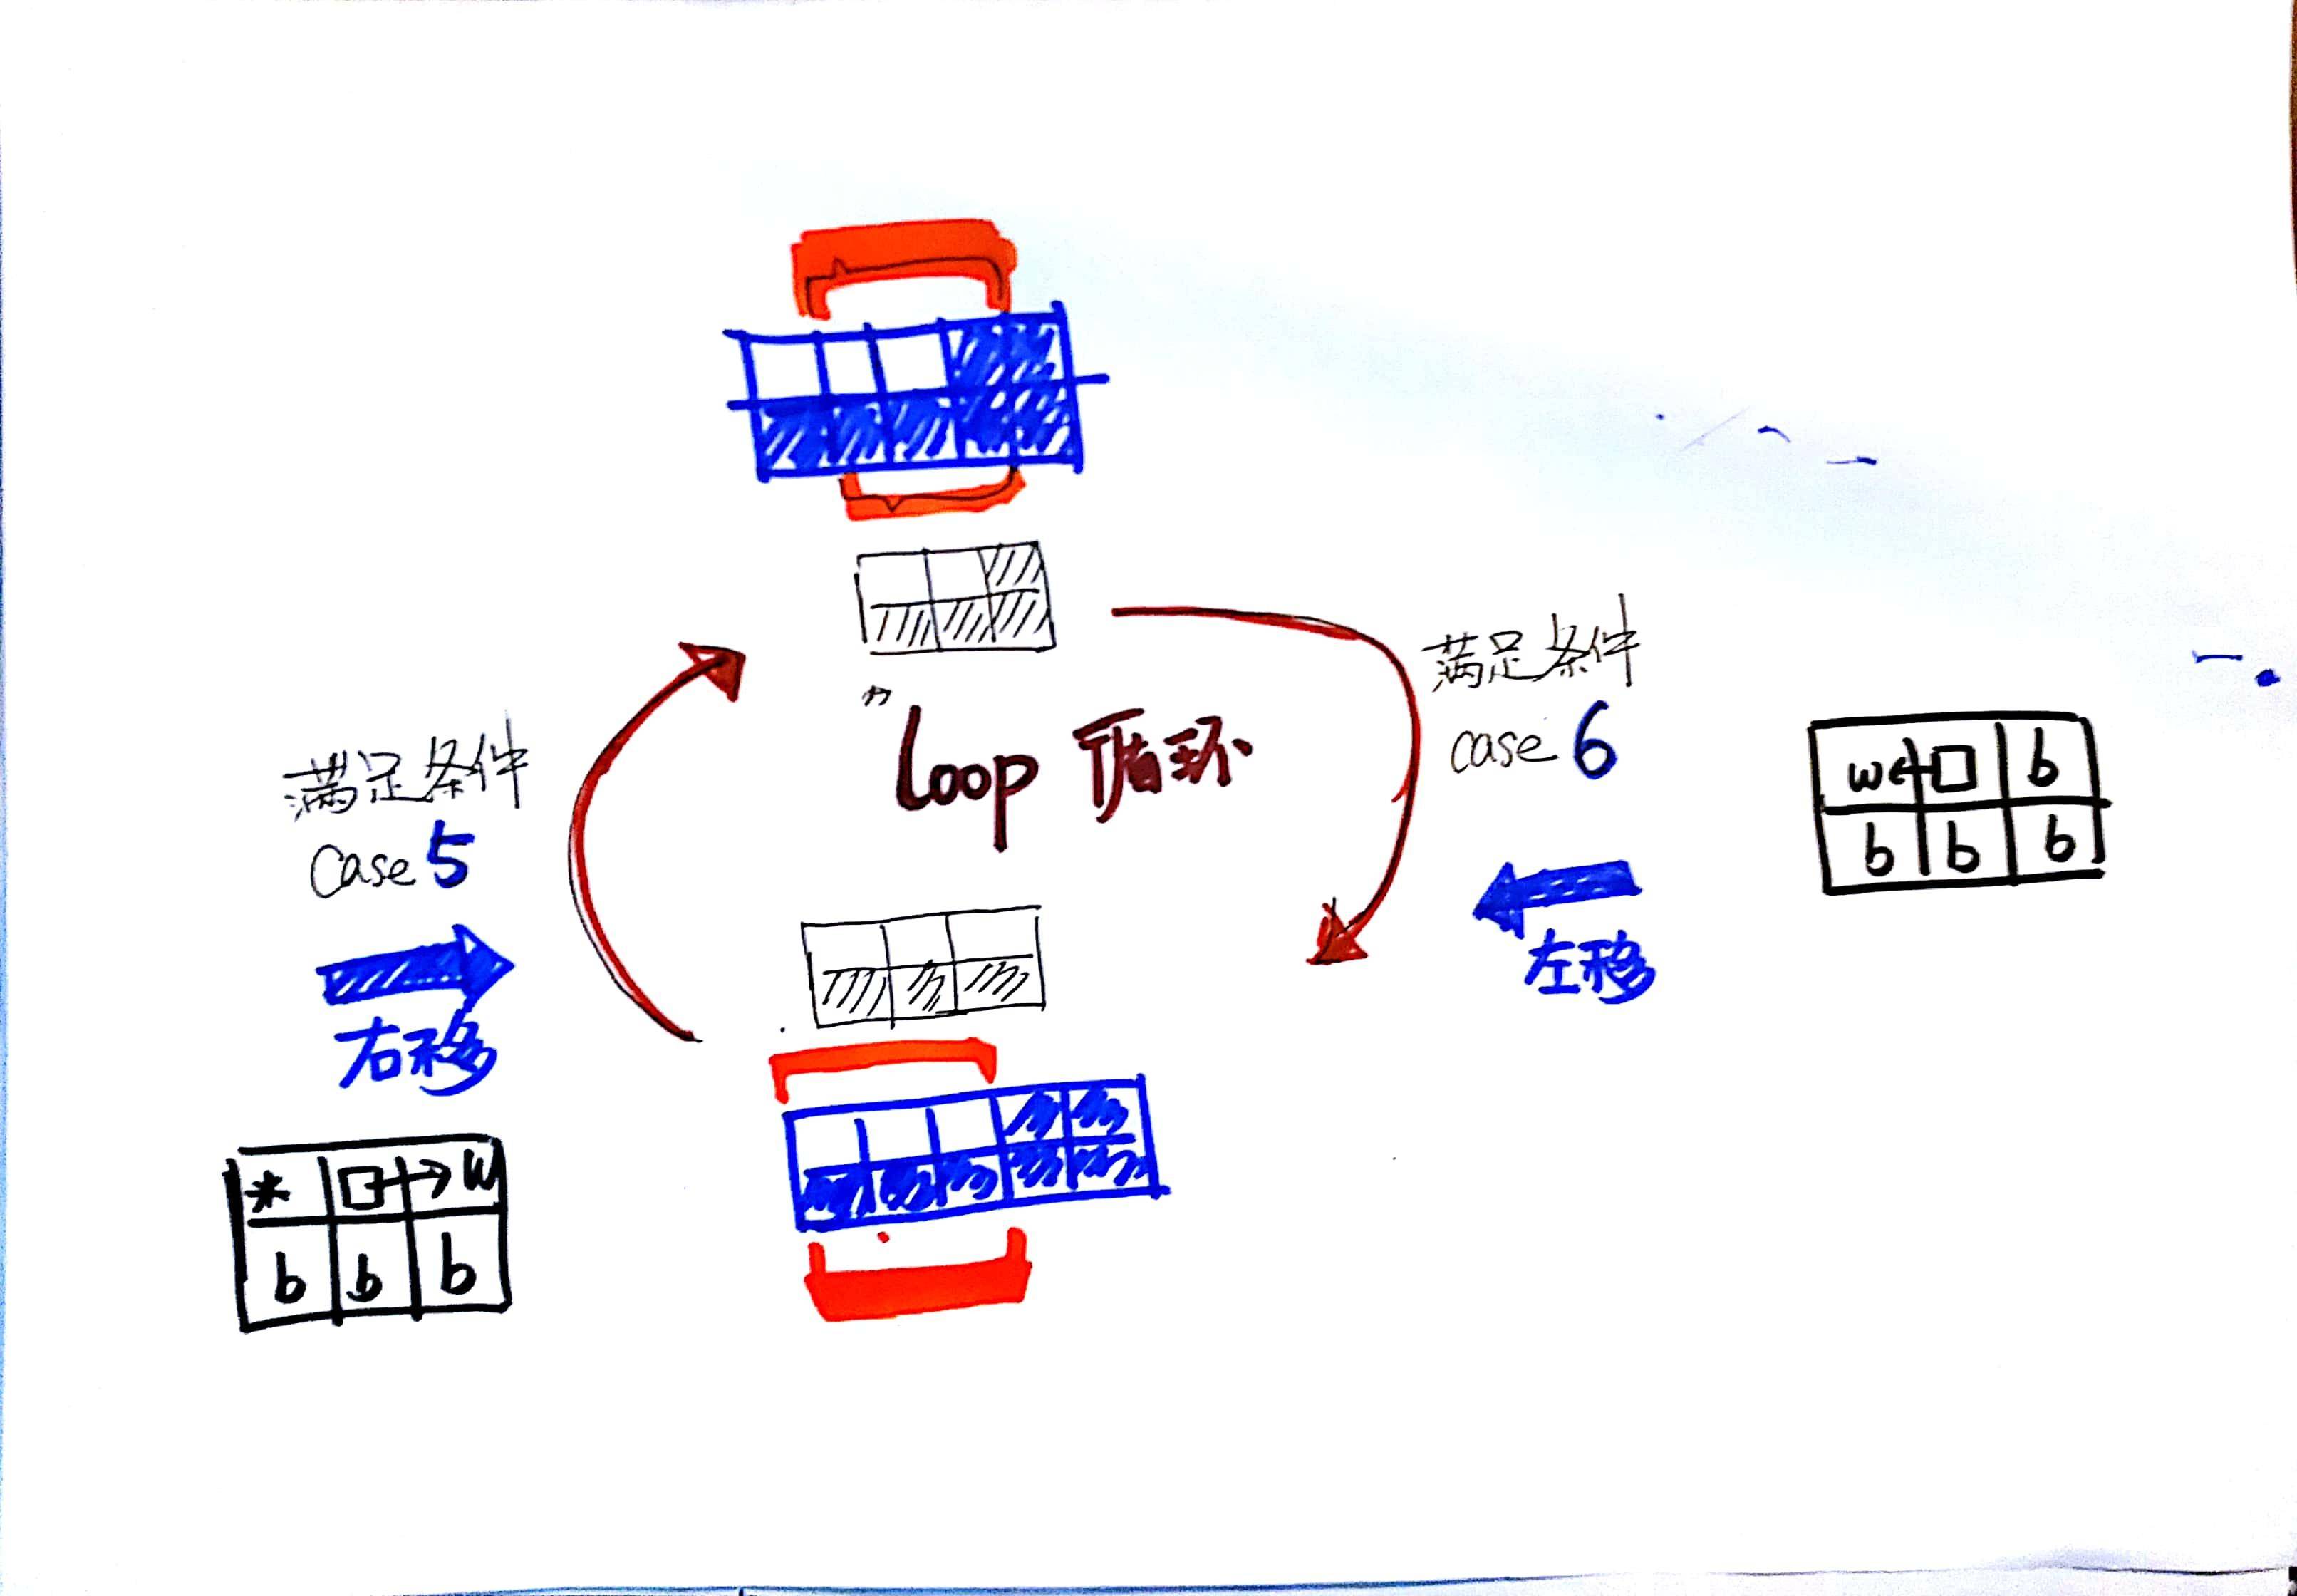 满足条件
case 6
左移
w←□ b
b b b
"loop 循环
满足条件
Case 5
右移
* □→w
b b b